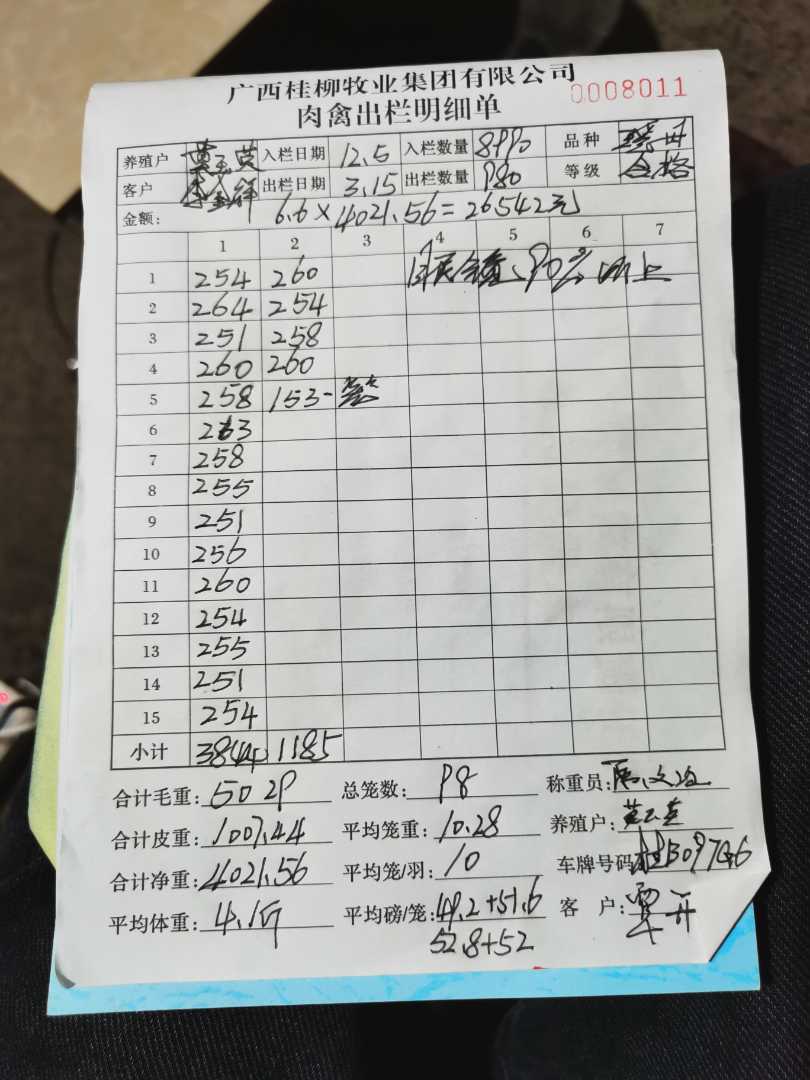 广西桂柳牧业集团有限公司 0008011
肉禽出栏明细单
养殖户 黄玉英 入栏日期 12.5 入栏数量 8990 品种
客户 出栏日期 3.15 出栏数量 980 等级 合格
金额: 6.6×4021.56=26542元
1 2 3 4 5 6 7
1 254 260 90% 以上
2 264 254
3 251 258
4 260 260
5 258 153-
6 263
7 258
8 255
9 251
10 256
11 260
12 254
13 255
14 251
15 254
小计 3844 1185
合计毛重: 5029 总笼数: 98 称重员:
合计皮重: 1007.44 平均笼重: 10.28 养殖户:
合计净重: 4021.56 平均笼/羽: 10 车牌号码: 桂B097G6
平均体重: 4.1斤 平均磅/笼: 49.2+51.6 客户:
52.8+52